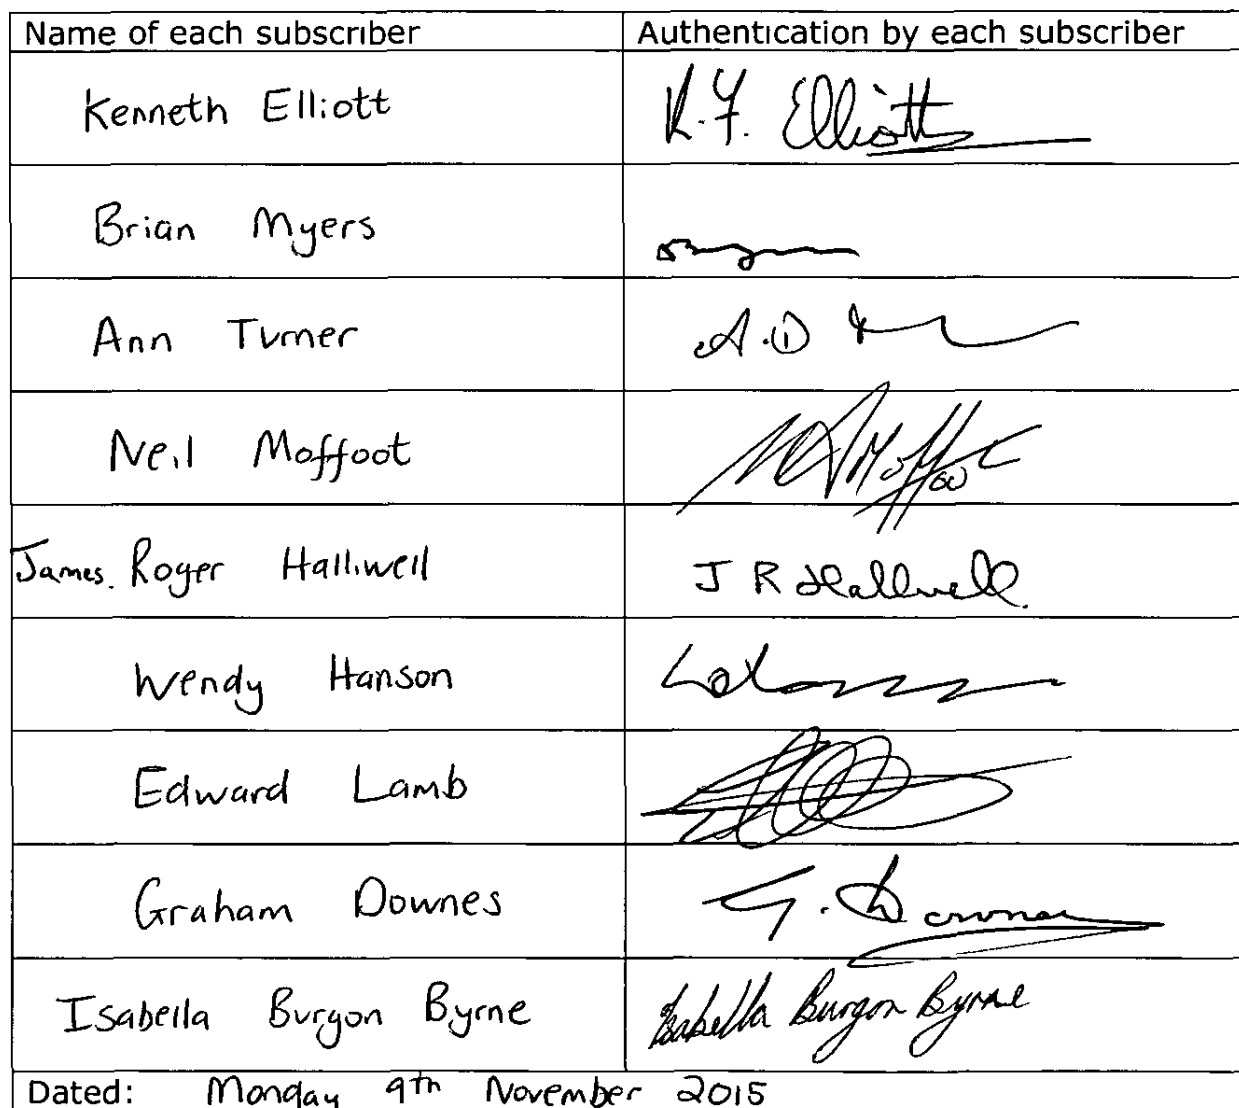 Name of each subscriber Authentication by each subscriber
Kenneth Elliott K.F. Elliott
Brian Myers
Ann Turner A.D
Neil Moffoot Moffoot
James. Roger Halliwell J R Halliwell
Wendy Hanson
Edward Lamb
Graham Downes G. Downes
Isabella Burgon Byrne Isabella Burgon Byrne
Dated: Monday 9th November 2015